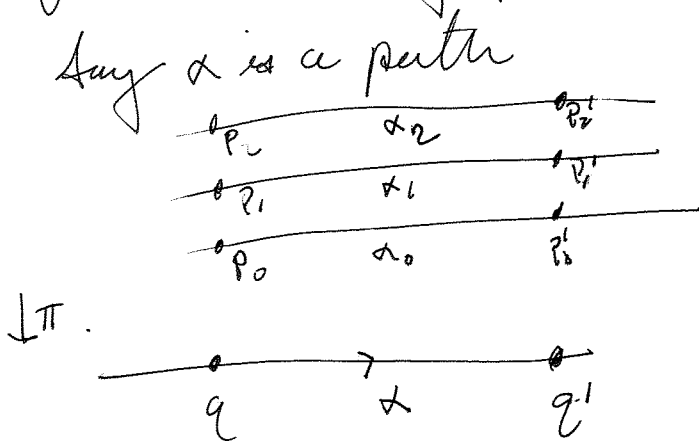 Say α is a path
P₂ α₂ P₂'
P₁ α₁ P₁'
P₀ α₀ P₀'
↓π.
q α q'